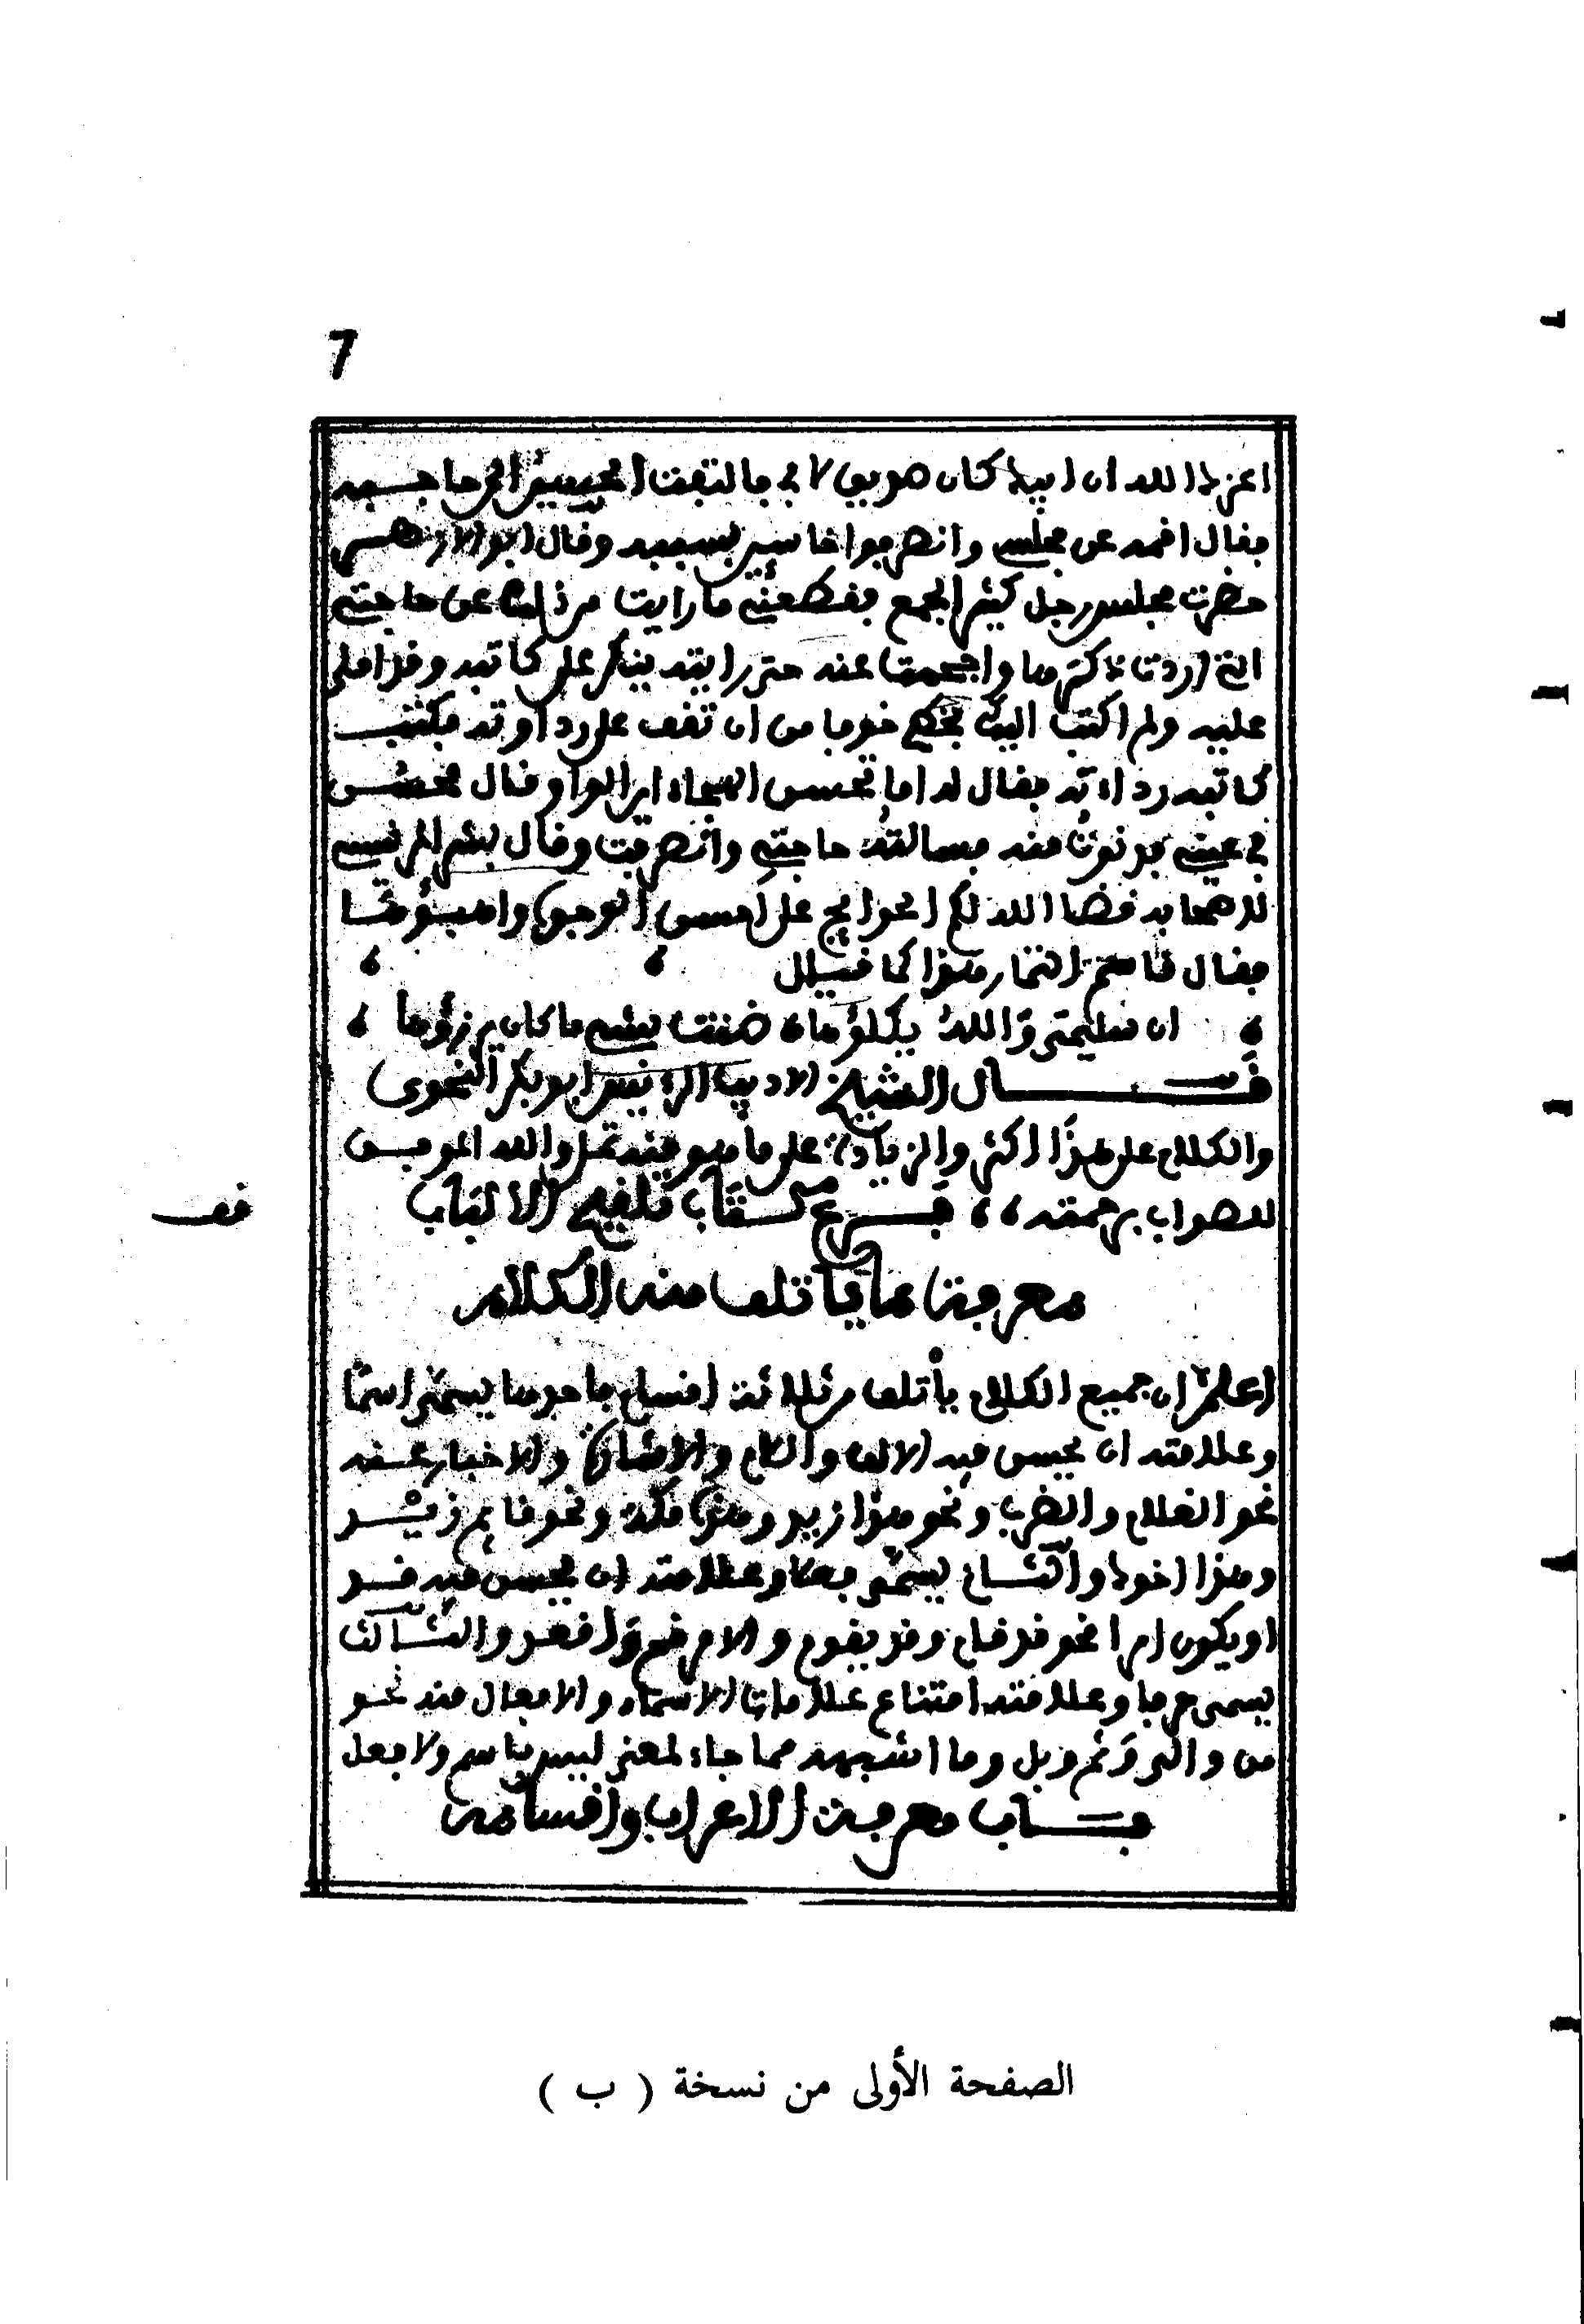 7
اعزك الله ان ابيك كان صديق لابي فالتفت الحسين الى صاحبه
فقال اقمه عن مجلسي وانصرفوا خاسيين بسببه وقال ابو الازهر
حضرت مجلس رجل كثير الجمع فقطعني ما رايت من ذلك عن حاجتي
التي اردت ذكرها واحجمت عنه حتى رايته ينكر على كاتبه وقد املى
عليه ولم اكتب اليك بخطي خوفا من ان تقف على رداوته فكتب
كاتبه رداءته فقال له اما تحسن الهجاء اين الواو قال
في عيني فدنوت منه فسالته حاجتي وانصرفت وقال بشر المريسي
لاصحابه قضا الله لكم الحوايج على احسن الوجوه واهنؤها
فقال قاسم التمار هذا كما قيل
ان سليمى والله يكلؤها ضنت بشيء ما كان يرزؤها
قال الشيخ الاديب الرئيس ابو بكر النحوي
والكلام على هذا اكثر والزيادة على ما هو فيه تمل والله الموفق
للصواب برحمته ،، فرع كتاب تلقيح الالباب
قف
معرفة ما ياتلف منه الكلام
اعلم ان جميع الكلام يأتلف من ثلاثة اقسام فاحدها يسمى اسمًا
وعلامته ان يحسن فيه الالف واللام والاشارة والاخبار عنه
نحو الغلام والضرب ونحو هذا زيد وهذه مكة ونحو قايم زيد
وهذا اخوك والثاني يسمى فعلا وعلامته ان يحسن فيه قد
او يكون امرا نحو قد قام وقد يقوم والامر قم واقعد والثالث
يسمى حرفا وعلامته امتناع علامات الاسماء والافعال منه نحو
من والى وثم وبل وما اشبهه مما جاء لمعنى ليس باسم ولا فعل
باب معرفة الاعراب واقسامه
الصفحة الأولى من نسخة ( ب )